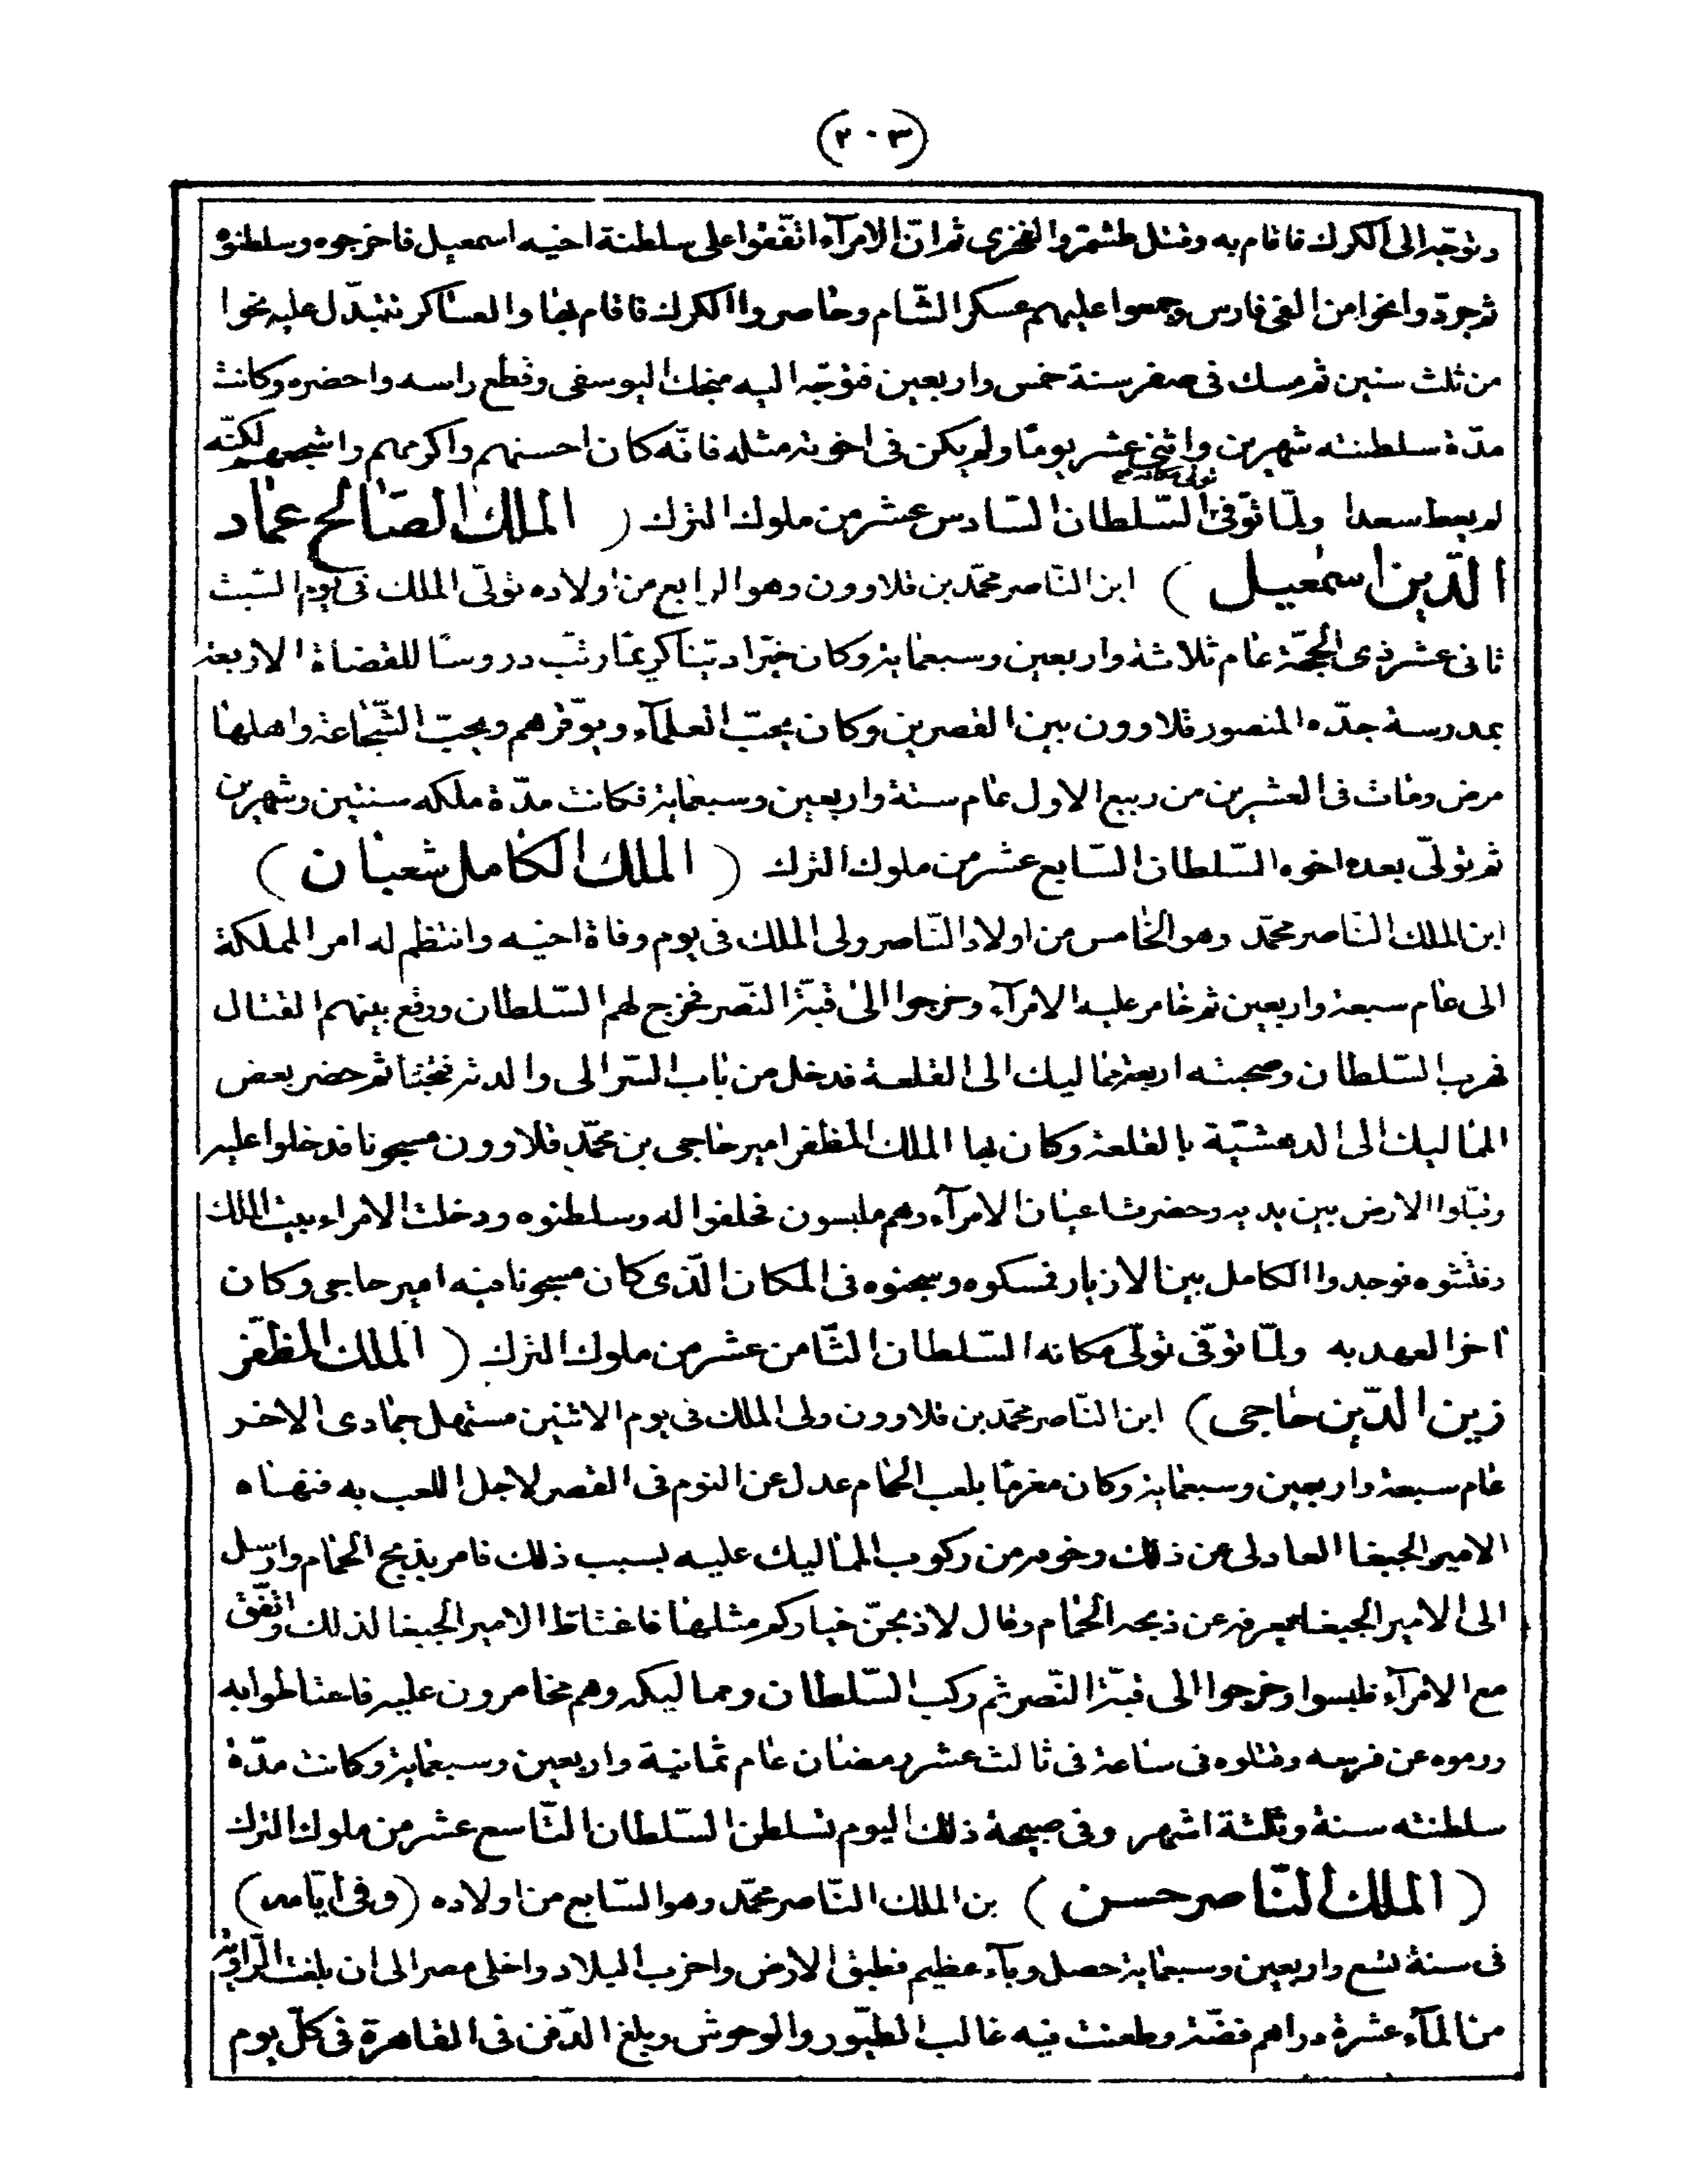 (٢٠٣)
وتوجه الى الكرك فاقام به وقتل طشتمر والفخرى ثم ان الامرآء اتّفقوا على سلطنة اخيه اسمعيل فاخرجوه وسلطنوه
ثم جرّدوا نحوا من الفى فارس وجمعوا عليهم عسكر الشّام وحاصروا الكرك فاقام بها والعساكر تتبدّل عليه نحوا
من ثلث سنين ثم مسك فى صفر سنة خمس واربعين فتوجّه اليه منجك اليوسفى وقطع راسه واحضره وكانت
مدّة سلطنته شهرين واثنى عشر يومًا ولم يكن فى اخوته مثله فانّه كان احسنهم واكرمهم واشجعهم لكنّه
لم يعط سعدا ولمّا توفّى تولى مكانه السّلطان السّادس عشر من ملوك الترك ( الملك الصّالح عماد
الدّين اسمعيل ) ابن النّاصر محمّد بن قلاوون وهو الرابع من اولاده تولّى الملك فى يوم السّبت
ثانى عشر ذى الحجّة عام ثلاثة واربعين وسبعماية وكان خيّرا ديّنا كريمًا رتّب دروسًا للقضاة الاربعة
بمدرسة جدّه المنصور قلاوون بين القصرين وكان يحبّ العلمآء ويوقّرهم ويحبّ الشّجاعة واهلها
مرض ومات فى العشرين من ربيع الاول عام ستة واربعين وسبعماية فكانت مدّة ملكه سنتين وشهرين
ثم تولّى بعده اخوه السّلطان السّابع عشر من ملوك الترك ( الملك الكامل شعبان )
ابن الملك النّاصر محمّد وهو الخامس من اولاد النّاصر ولى الملك فى يوم وفاة اخيه وانتظم له امر المملكة
الى عام سبعة واربعين ثم خامر عليه الامرآء وخرجوا الى قبّة النّصر فخرج لهم السّلطان ووقع بينهم القتال
فهرب السّلطان وصحبته اربعة مماليك الى القلعة فدخل من باب السّر الى والدته فخبتا ثم حضر بعض
المماليك الى الدهشيّة بالقلعة وكان بها الملك المظفر امير حاجى بن محمّد قلاوون مسجونا فدخلوا عليه
وقبّلوا الارض بين يديه وحضرت اعيان الامرآء وهم ملبسون فحلفوا له وسلطنوه ودخلت الامراء بيت الملك
وفتّشوه فوجدوا الكامل بين الازيار فمسكوه وسجنوه فى المكان الّذى كان مسجونا فيه امير حاجى وكان
آخر العهد به ولمّا توفّى تولّى مكانه السّلطان الثّامن عشر من ملوك الترك ( الملك المظفّر
زين الدّين حاجى ) ابن النّاصر محمّد بن قلاوون ولى الملك فى يوم الاثنين مستهل جمادى الاخر
عام سبعة واربعين وسبعماية وكان مغرمًا بلعب الحمام عدل عن النوم فى القصر لاجل اللعب به فنهاه
الامير الجبغا العادلى عن ذلك وخوفه من ركوب المماليك عليه بسبب ذلك فامر بذبح الحمام وارسل
الى الامير الجبغا يعرفه عن ذبحه الحمام وقال لاذبحنّ خياركم مثلها فاغتاظ الامير الجبغا لذلك واتّفق
مع الامرآء فلبسوا وخرجوا الى قبّة النّصر ثم ركب السّلطان ومماليكه وهم مخامرون عليه فاحتاطوا به
ورموه عن فرسه وقتلوه فى ساعة فى ثالث عشر رمضان عام ثمانية واربعين وسبعماية وكانت مدّة
سلطنته سنة وثلثة اشهر وفى صبيحة ذلك اليوم تسلطن السّلطان التّاسع عشر من ملوك الترك
( الملك النّاصر حسن ) بن الملك النّاصر محمّد وهو السّابع من اولاده (وفى ايّامه)
فى سنة تسع واربعين وسبعماية حصل وبآء عظيم فطبق الارض واخرب البلاد واخلى مصر الى ان بلغت الرّاوية
من المآء عشرة دراهم فضّة وطعنت فيه غالب الطيّور والوحوش وبلغ الدّفن فى القاهرة فى كلّ يوم